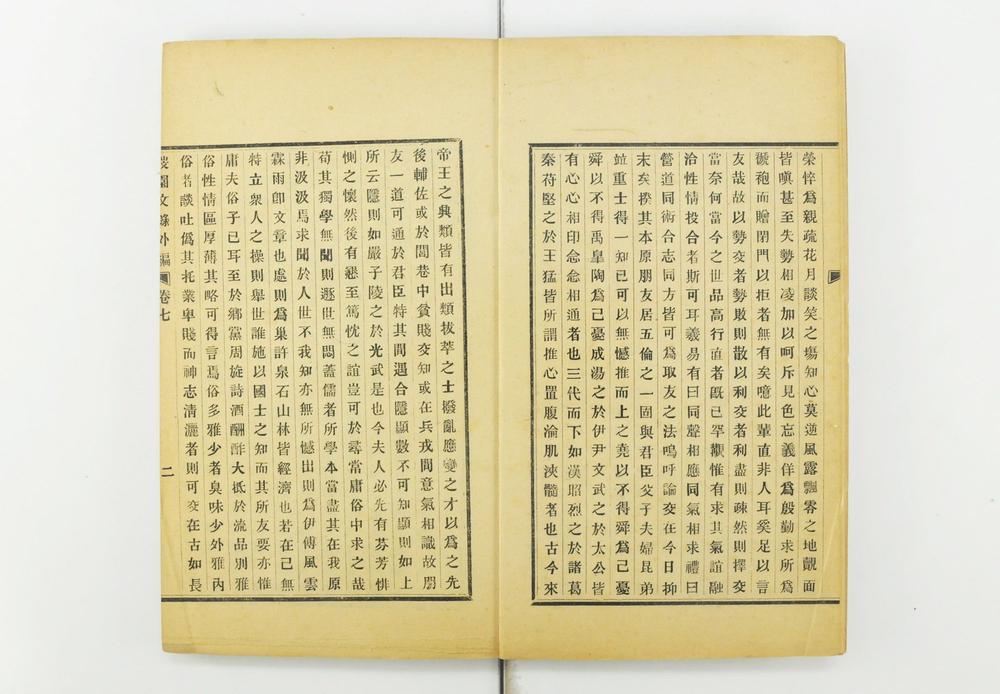 榮悴爲親疏花月談笑之塲知心莫逆風露飄零之地覿面
皆嗔甚至失勢相凌加以呵斥見色忘義佯爲殷勤求所爲
綈袍而贈閉門以拒者無有矣噫此輩直非人耳奚足以言
友哉故以勢交者勢敗則散以利交者利盡則疎然則擇交
當奈何當今之世品高行直者旣已罕覯惟有求其氣誼融
洽性情投合者斯可耳羲易有曰同聲相應同氣相求禮曰
營道同術合志同方皆可爲取友之法嗚呼論交在今日抑
末矣揆其本原朋友居五倫之一固與君臣父子夫婦昆弟
竝重士得一知已可以無憾推而上之堯以不得舜爲己憂
舜以不得禹皐陶爲己憂成湯之於伊尹文武之於太公皆
有心心相印念念相通者也三代而下如漢昭烈之於諸葛
秦苻堅之於王猛皆所謂推心置腹淪肌浹髓者也古今來
帝王之興類皆有出類拔萃之士撥亂應變之才以爲之先
後輔佐或於閭巷中貧賤交知或在兵戎間意氣相識故朋
友一道可通於君臣特其間遇合隱顯數不可知顯則如上
所云隱則如嚴子陵之於光武是也今夫人必先有芬芳悱
惻之懷然後有懇至篤忱之誼豈可於尋當庸俗中求之哉
苟其獨學無聞則遯世無悶蓋儒者所學本當盡其在我原
非汲汲焉求聞於人世不我知亦無所憾出則爲伊傅風雲
霖雨卽文章也處則爲巢許泉石山林皆經濟也若在己無
特立衆人之操則舉世誰施以國士之知而其所友要亦惟
庸夫俗子已耳至於鄉黨周旋詩酒酬酢大柢於流品別雅
俗性情區厚薄其略可得言焉俗多雅少者臭味少外雅內
俗者談吐僞其托業卑賤而神志清灑者則可交在古如長
弢園文錄外編 卷七
二